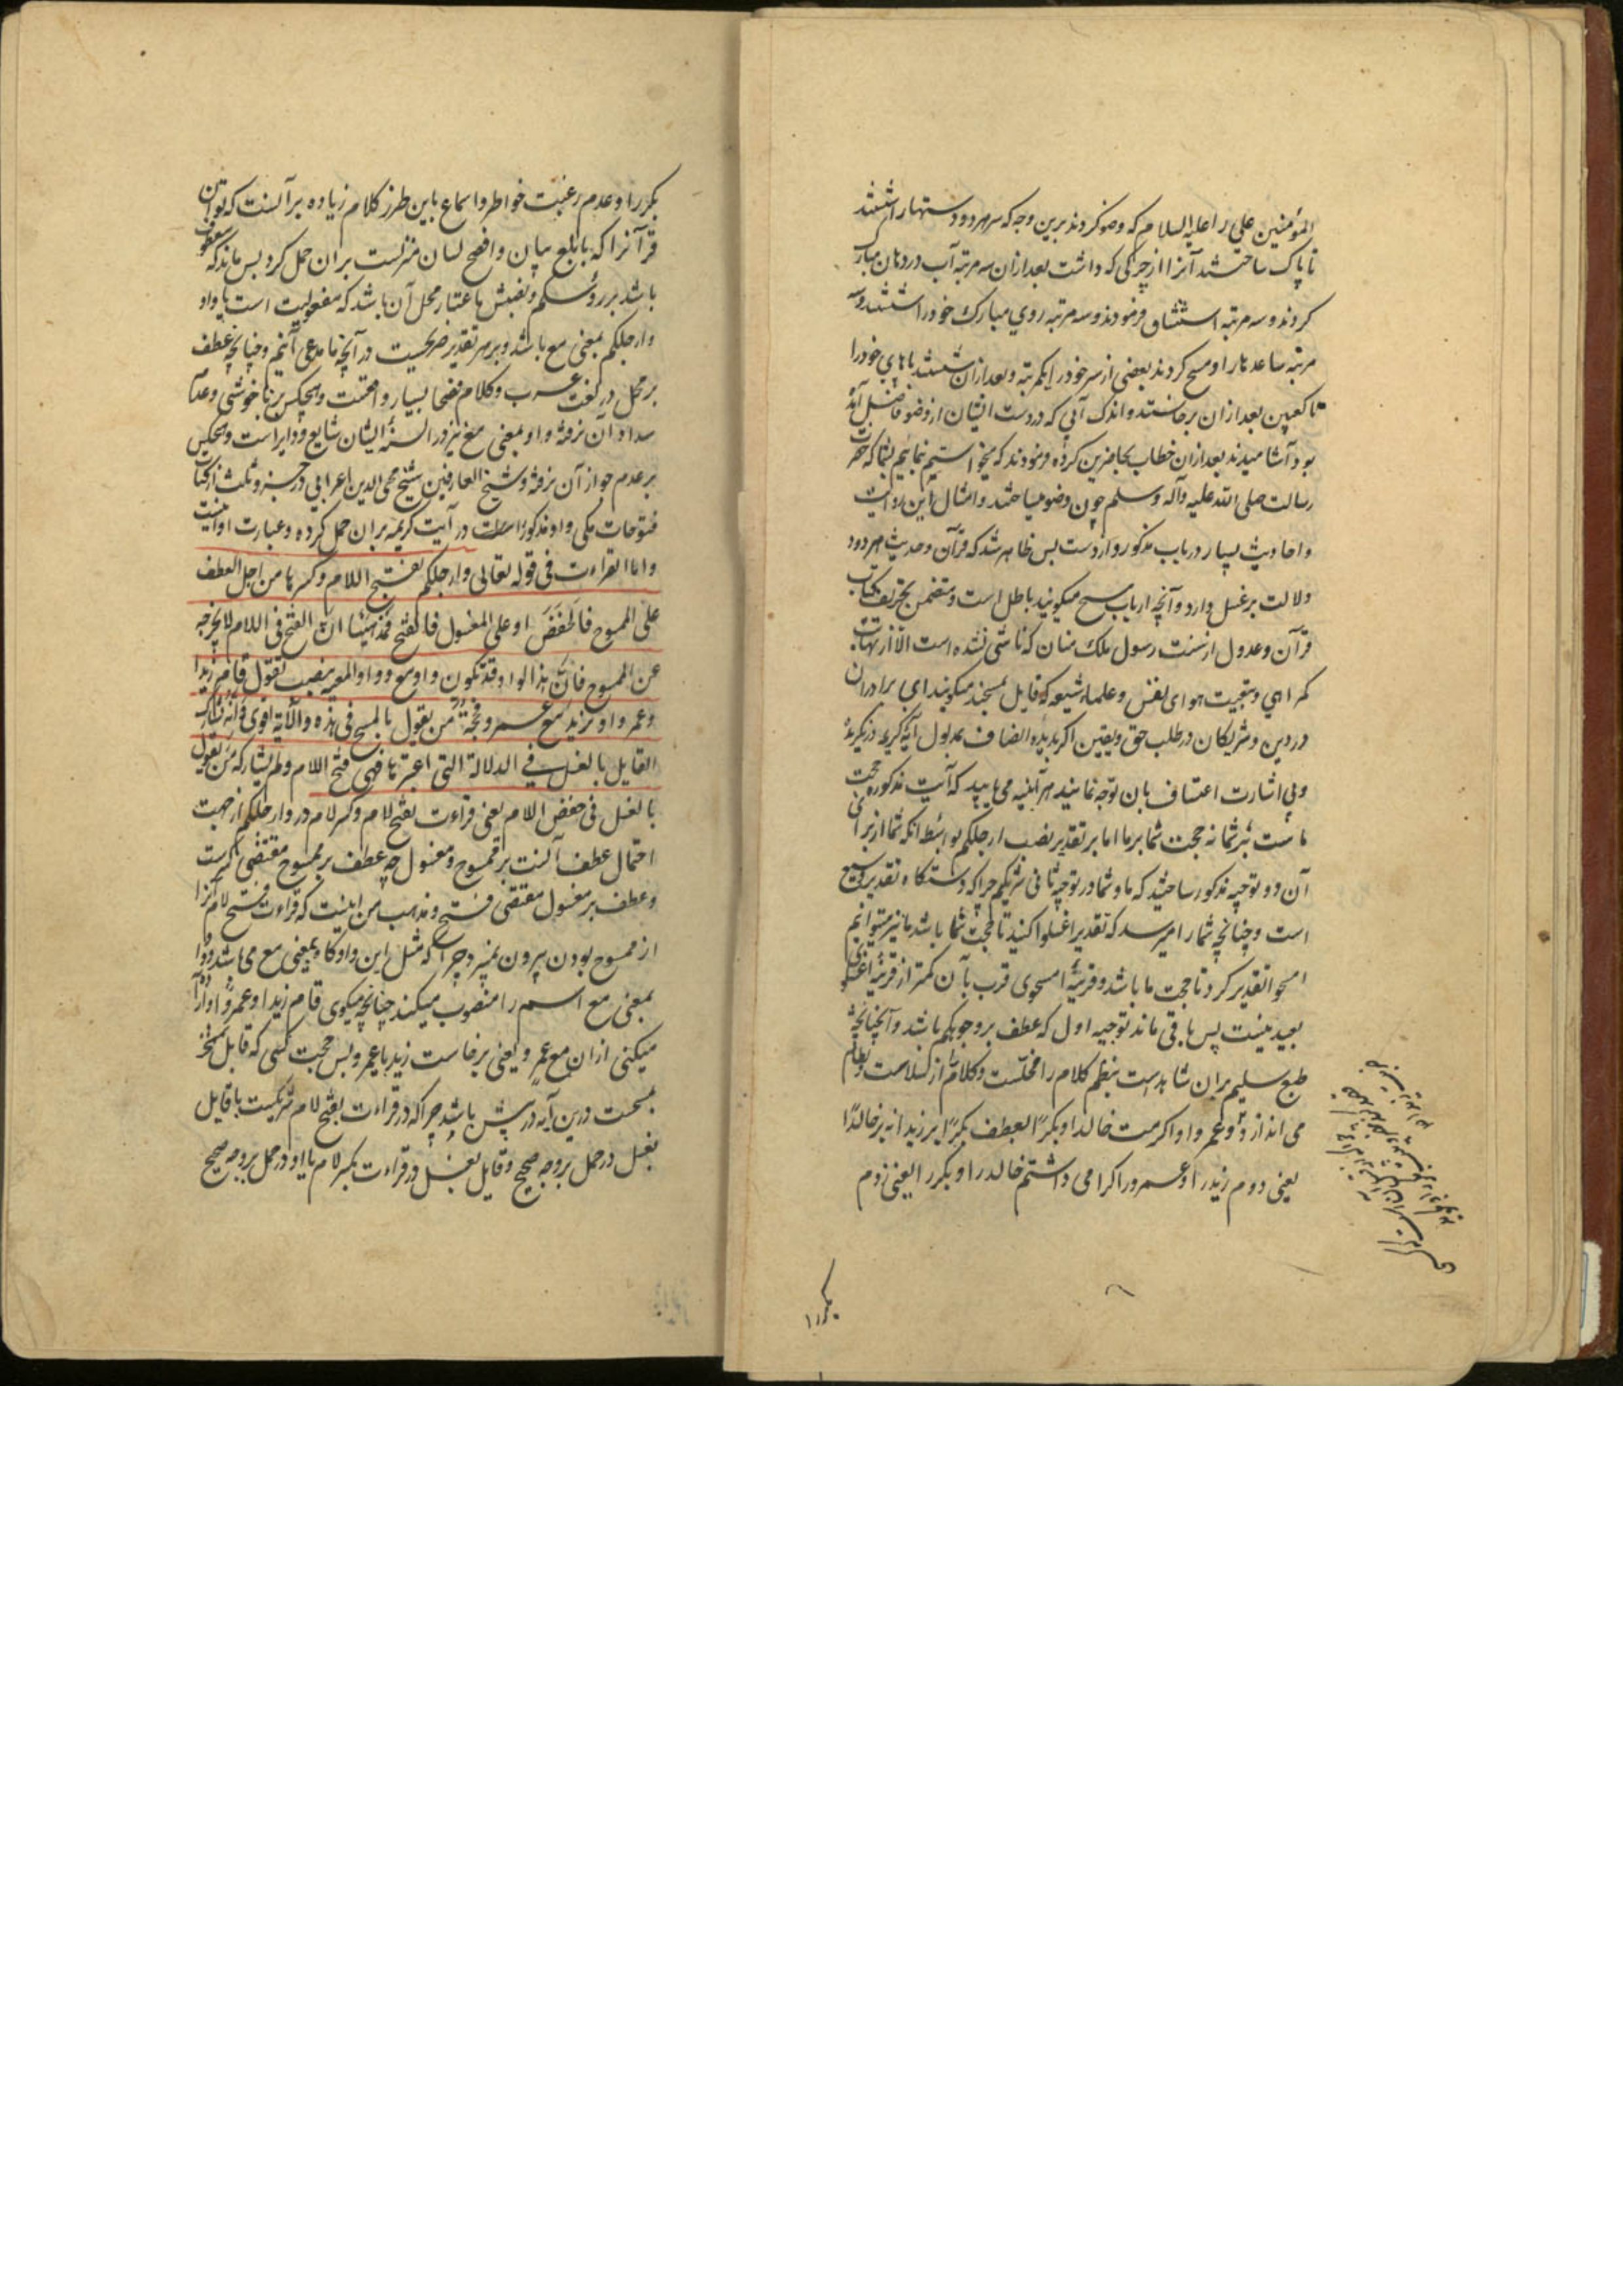 المؤمنین علی را علیه السلام که وضو کردند برین وجه که سر هر دو دستها را شستند
تا پاک ساختند آنرا از چرکی که داشت بعد ازان سه مرتبه آب در دهان مبارک
کردند و سه مرتبه استنشاق فرمودند و سه مرتبه روی مبارک خود را شستند و سه
مرتبه ساعدها را و مسح کردند بعضی از سر خود را یکمرتبه و بعد ازان شستند پاهای خود را
تا کعبین بعد ازان برخاستند و اندک آبی که در دست ایشان از وضو فاضل آمده
بود آشامیدند بعد ازان خطاب بحاضرین کرده فرمودند که میخواستیم نمائیم بشما که حضرت
رسالت صلی الله علیه وآله وسلم چون وضو میساختند و امثال این روایت
و احادیث بسیار در باب مذکور واردست پس ظاهر شد که قرآن و حدیث هر دو
دلالت بر غسل دارد و آنچه ارباب مسح میگویند باطل است و متضمن تحریف کتاب
قرآن و عدول از سنت رسول ملک منان که ناشی نشده است الا از نهایت
گمراهی و تبعیت هوای نفس و علماء شیعه که قایل بمسحند میگویند ای برادران
در دین و شریکان در طلب حق و یقین اگر بدیده انصاف بمدلول آیه کریمه در نگرید
و بی اشارت اعتساف بان توجه نمائید هر آینه می یابید که آیت مذکوره حجت
ماست بر شما نه حجت شما بر ما اما بر تقدیر نصب ارجلکم بواسطه آنکه شما از برای
آن دو توجیه مذکور ساختید که ما و شما در توجیه ثانی شریکیم چرا که دستگاه تقدیر وسیع
است و چنانچه شما را میرسد که تقدیر اغسلوا کنید تا حجت شما باشد ما نیز میتوانیم
امسحوا تقدیر کرد تا حجت ما باشد و قرینه امسحوی قرب بآن کمتر از قرینه اغسلوی
بعید نیست پس باقی ماند توجیه اول که عطف بر وجوهکم باشد و آنچنانچه
طبع سلیم بران شاهدست بنظم کلام را مخلست و کلام را از سلاست و نظام
می اندازد و عمروا و اکرمت خالدا و بکرا العطف بکرا بر زید انه بر خالدا
یعنی زدم زید را و عمرو را گرامی داشتم خالد را و بکر را یعنی زدم
بکر را
بکر را و عدم رغبت خواطر و اسماع باین طرز کلام زیاده بر آنست که توان
قرآنرا که بابلغ بیان و افصح لسان منزلست بران حمل کرد پس ماند که معطوف
باشد بر رؤسکم و نصبش باعتبار محل آن باشد که مفعولیت است یا واو
وارجلکم بمعنی مع باشد و بر هر تقدیر صریحست در آنچه ما مدعی آنیم و چنانچه عطف
بر محل در لغت عرب و کلام فصحا بسیار واقعست و هیچکس بر ناخوشی و عدم
سداد آن نرفته واو بمعنی مع نیز در السنه ایشان شایع و دایر است و هیچکس
بر عدم جواز آن نرفته و شیخ العارفین شیخ محی الدین اعرابی در جزو ثلث از کتاب
فتوحات مکی واو مذکور است در آیت کریمه بران حمل کرده و عبارت او اینست
واما القراءت فی قوله تعالی وارجلکم بفتح اللام وکسرها من اجل العطف
علی الممسوح فالخفض او علی المغسول فالفتح فمذهبنا ان الفتح فی اللام لا یخرجه
عن الممسوح فان هذا الواو قد تکون واو مع و واو المعیه ینصب تقول قام زیدا
وعمروا و ترید مع عمرو فحجة من یقول بالمسح فی هذه الآیة اقوی لانه یشارک
القایل بالغسل فی الدلالة التی اعتبرها فهی فتح اللام ولم یشارکه من یقول
بالغسل فی خفض اللام یعنی قراءت بفتح لام و کسر لام در وارجلکم از جهت
احتمال عطف آنست بر ممسوح و مغسول چه عطف بر ممسوح مقتضی کسرست
و عطف بر مغسول مقتضی فتح و مذهب من اینست که قراءت فتح لام آنرا
از ممسوح بودن بیرون نمیبرد چرا که مثل این واو گاه بمعنی مع می باشد و واو
بمعنی مع اسم را منصوب میکند چنانچه میگوی قام زیدا و عمروا و اراده
میکنی ازان مع عمرو یعنی برخاست زید با عمرو پس حجت کسی که قایل بمسح
بمسحست درین آیه در پیش باشد چرا که در قراءت بفتح لام شریکست با قایل
بغسل در حمل بر وجه صحیح و قایل بغسل در قراءت بکسر لام با او در حمل بر وجه صحیح